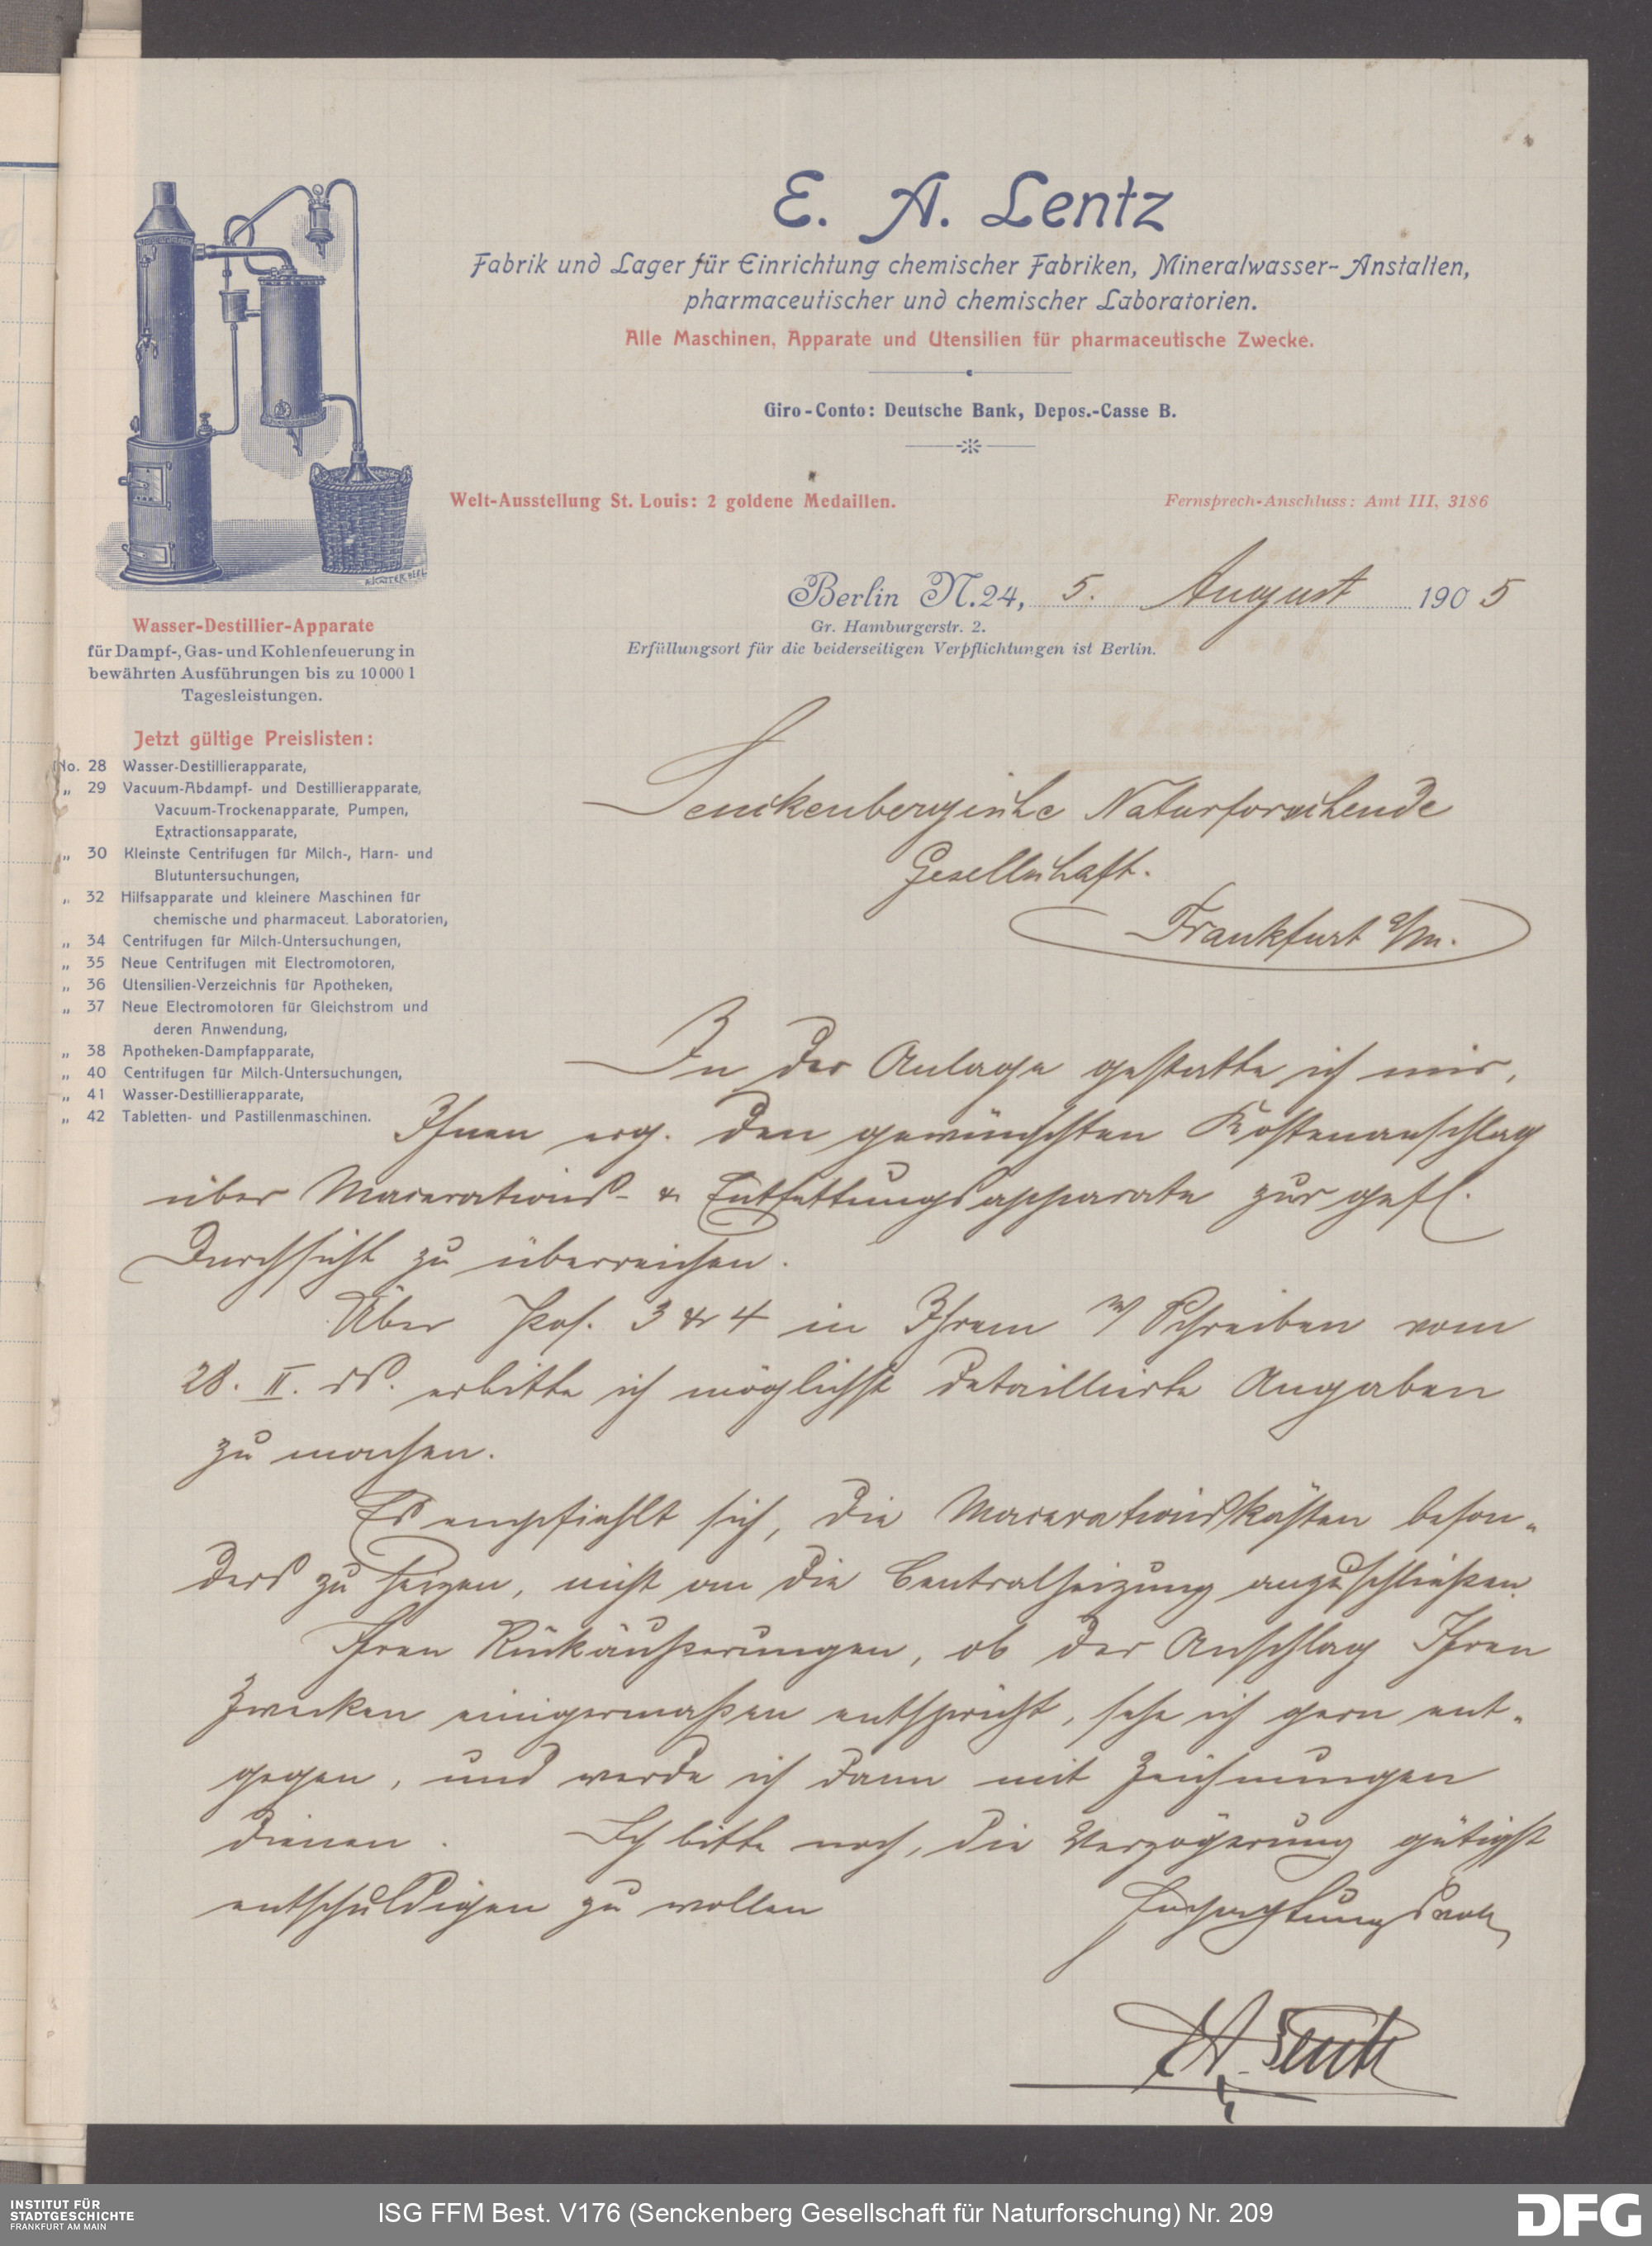 E. A. Lentz
Fabrik und Lager für Einrichtung chemischer Fabriken, Mineralwasser-Anstalten,
pharmaceutischer und chemischer Laboratorien.
Alle Maschinen, Apparate und Utensilien für pharmaceutische Zwecke.
Giro-Conto: Deutsche Bank, Depos.-Casse B.
Welt-Ausstellung St. Louis: 2 goldene Medaillen.
Fernsprech-Anschluss: Amt III, 3186
Berlin N.24, 5. August 1905
Gr. Hamburgerstr. 2.
Erfüllungsort für die beiderseitigen Verpflichtungen ist Berlin.
Wasser-Destillier-Apparate
für Dampf-, Gas- und Kohlenfeuerung in
bewährten Ausführungen bis zu 10000 l
Tagesleistungen.
Jetzt gültige Preislisten:
No. 28 Wasser-Destillierapparate,
„ 29 Vacuum-Abdampf- und Destillierapparate,
Vacuum-Trockenapparate, Pumpen,
Extractionsapparate,
„ 30 Kleinste Centrifugen für Milch-, Harn- und
Blutuntersuchungen,
„ 32 Hilfsapparate und kleinere Maschinen für
chemische und pharmaceut. Laboratorien,
„ 34 Centrifugen für Milch-Untersuchungen,
„ 35 Neue Centrifugen mit Electromotoren,
„ 36 Utensilien-Verzeichnis für Apotheken,
„ 37 Neue Electromotoren für Gleichstrom und
deren Anwendung,
„ 38 Apotheken-Dampfapparate,
„ 40 Centrifugen für Milch-Untersuchungen,
„ 41 Wasser-Destillierapparate,
„ 42 Tabletten- und Pastillenmaschinen.
Senckenbergische Naturforschende
Gesellschaft.
Frankfurt a/m.
In der Anlage gestatte ich mir,
Ihnen erg. den gewünschten Kostenanschlag
über Macerations- & Entfettungsapparate zur gefl.
Durchsicht zu überreichen.
Über Pos. 3 & 4 in Ihrem Schreiben vom
28. II. ds. erbitte ich möglichst detaillierte Angaben
zu machen.
Es empfiehlt sich, die Macerationskästen beson-
ders zu heizen, nicht an die Centralheizung anzuschließen.
Ihren Rückäußerungen, ob der Anschlag Ihren
Zwecken einigermaßen entspricht, sehe ich gern ent-
gegen, und werde ich dann mit Zeichnungen
dienen. Ich bitte noch, die Verzögerung gütigst
entschuldigen zu wollen
Hochachtungsvoll
EA. Lentz
INSTITUT FÜR
STADTGESCHICHTE
FRANKFURT AM MAIN
ISG FFM Best. V176 (Senckenberg Gesellschaft für Naturforschung) Nr. 209
DFG